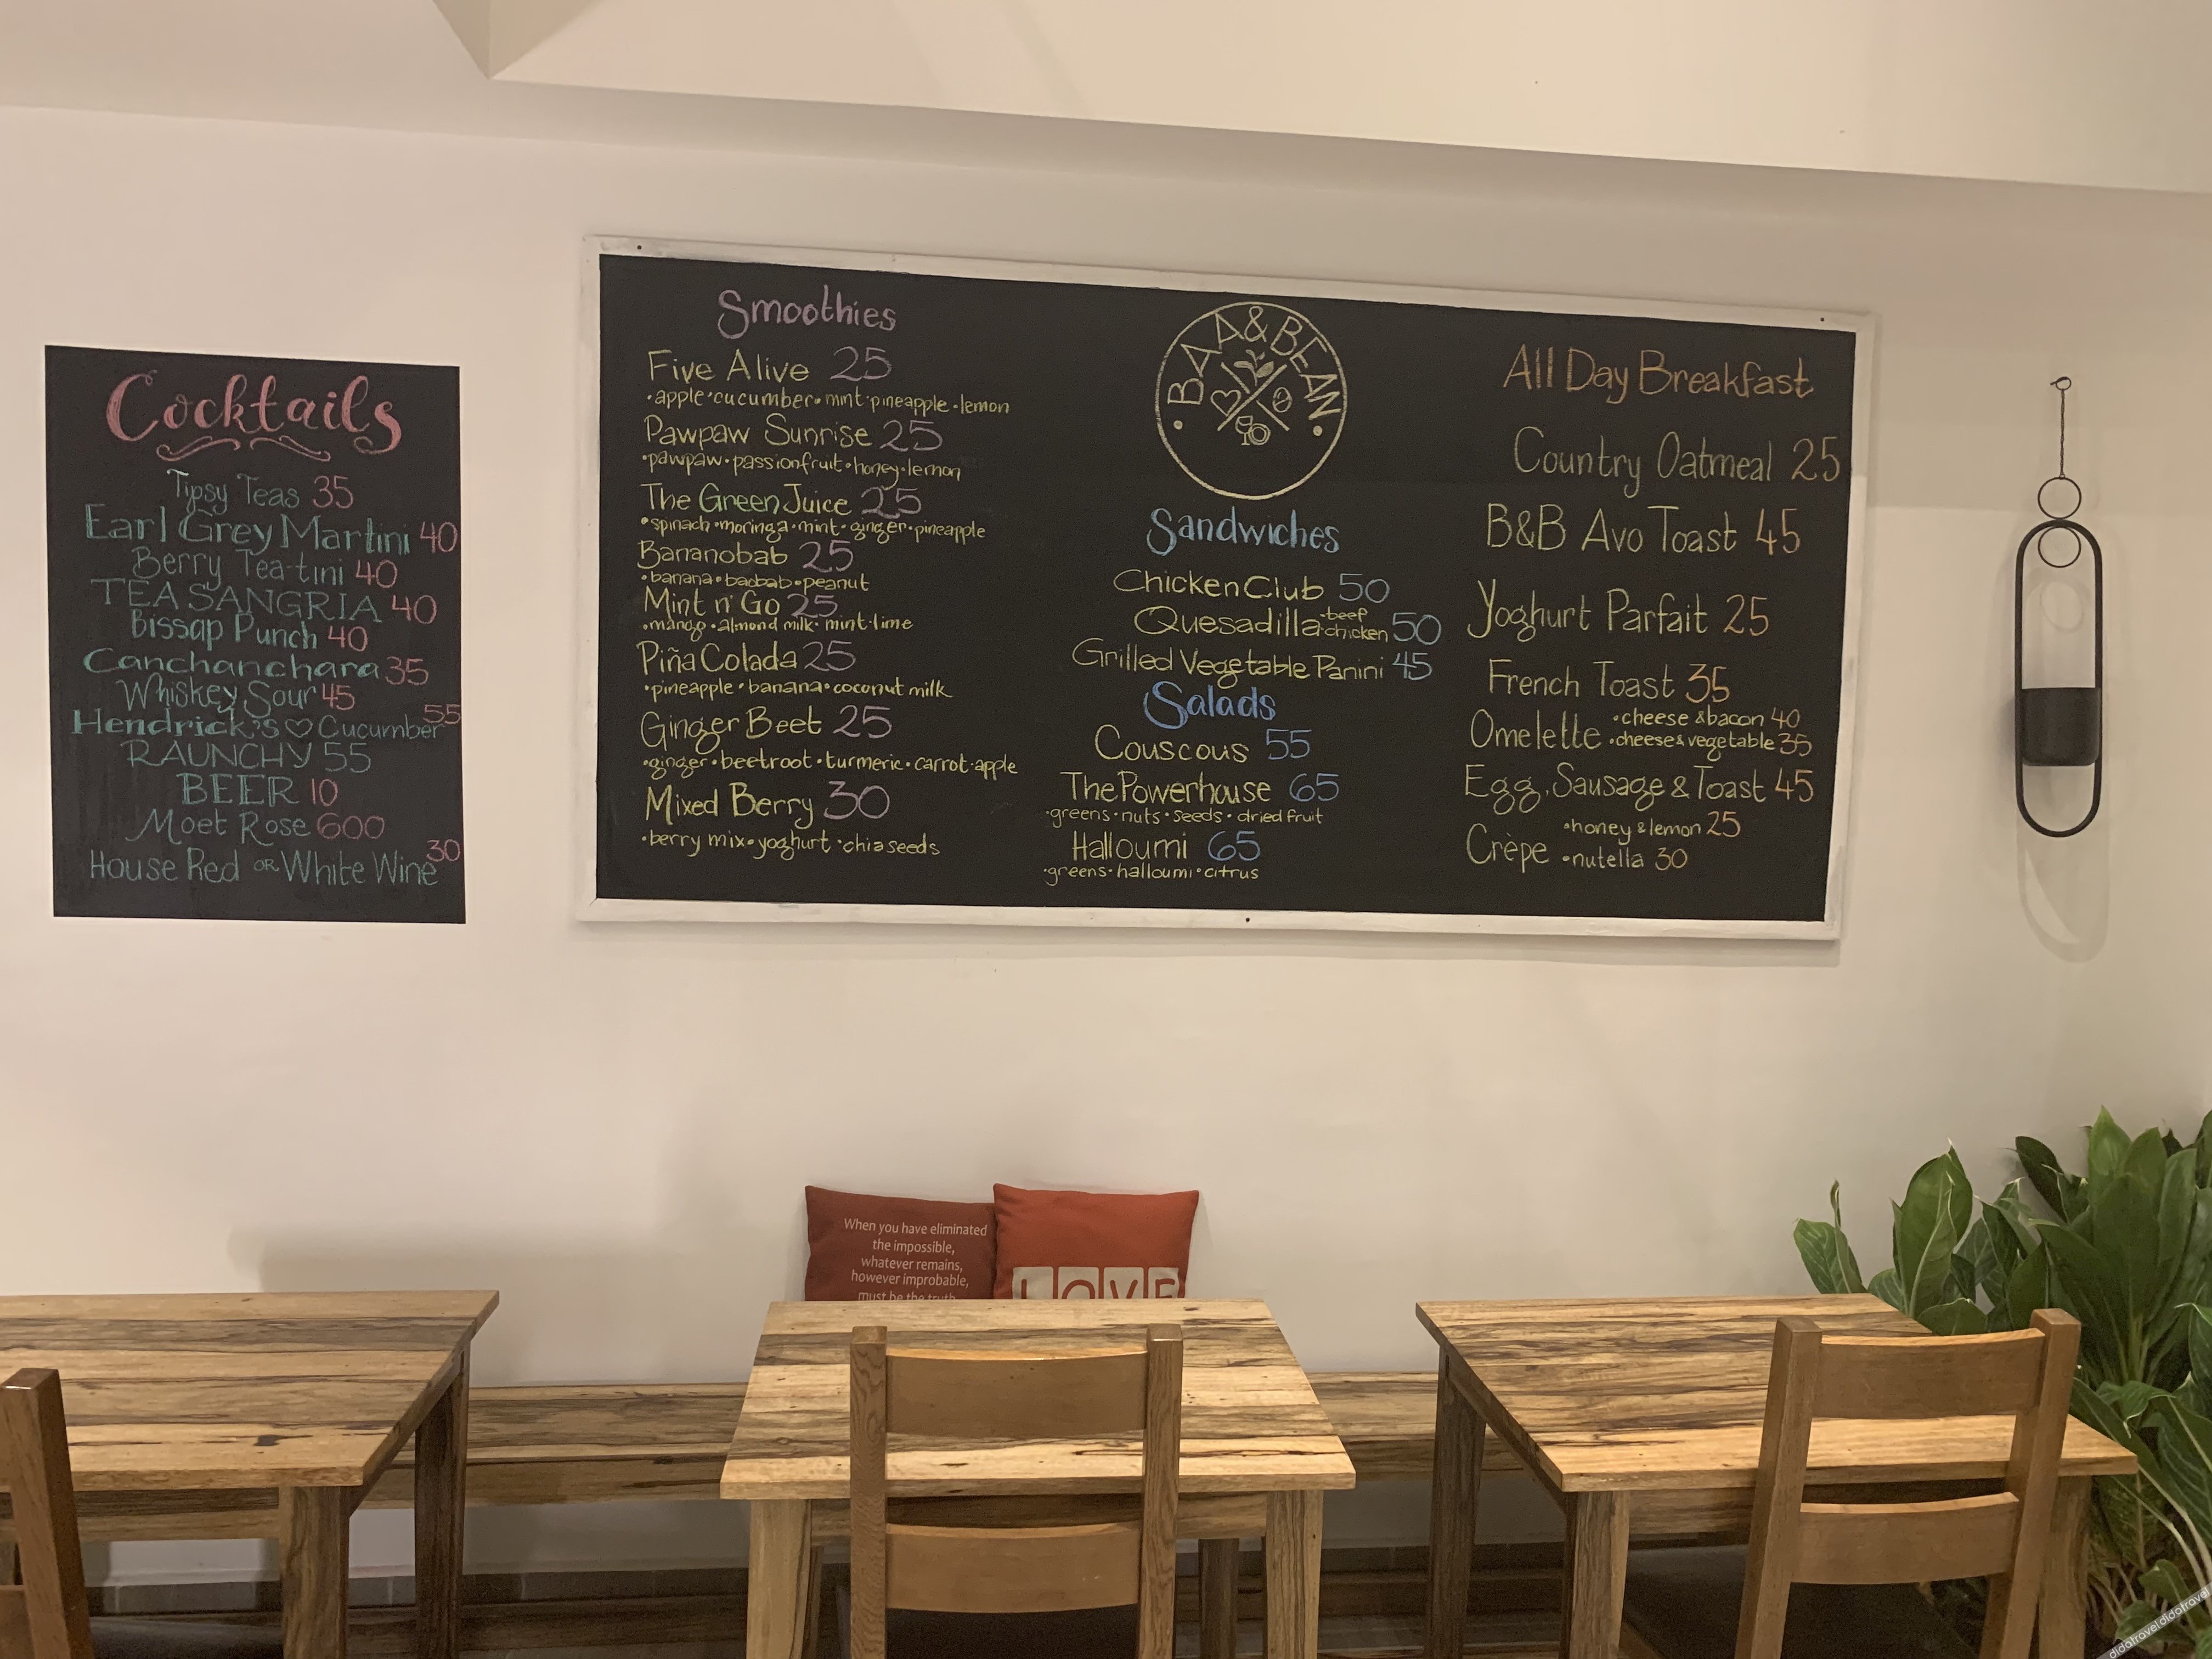 Cocktails
Tipsy Teas 35
Earl Grey Martini 40
Berry Tea-tini 40
TEA SANGRIA 40
Bissap Punch 40
Canchanchara 35
Whiskey Sour 45
Hendrick's ♡ Cucumber 55
RAUNCHY 55
BEER 10
Moet Rose 600
House Red OR White Wine 30
Smoothies
Five Alive 25
•apple•cucumber•mint•pineapple•lemon
Pawpaw Sunrise 25
•pawpaw•passionfruit•honey•lemon
The Green Juice 25
•spinach•moringa•mint•ginger•pineapple
Bananobab 25
•banana•baobab•peanut
Mint n' Go 25
•mango•almond milk•mint•lime
Piña Colada 25
•pineapple•banana•coconut milk
Ginger Beet 25
•ginger•beetroot•turmeric•carrot•apple
Mixed Berry 30
•berry mix•yoghurt•chia seeds
•BAA & BEAN•
Sandwiches
Chicken Club 50
Quesadilla •beef •chicken 50
Grilled Vegetable Panini 45
Salads
Couscous 55
The Powerhouse 65
•greens•nuts•seeds•dried fruit
Halloumi 65
•greens•halloumi•citrus
All Day Breakfast
Country Oatmeal 25
B&B Avo Toast 45
Yoghurt Parfait 25
French Toast 35
Omelette •cheese & bacon 40
•cheese & vegetable 35
Egg, Sausage & Toast 45
Crèpe •honey & lemon 25
•nutella 30
When you have eliminated
the impossible,
whatever remains,
however improbable,
must be the truth
LOVE
didatravel didatravel